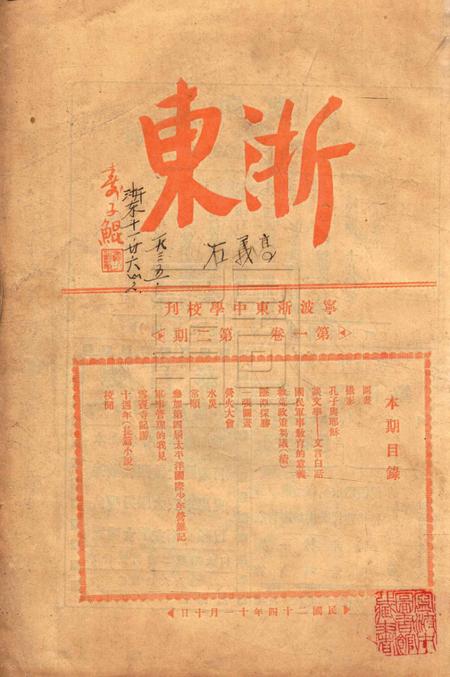 浙東
袁子鯤
浙東十一·廿六
一九三五·
寧波浙東中學校刊
第一卷 第二期
本期目錄
圖畫
攝影
孔子與耶穌
談文學——文言白話
國民軍事教育的意義
教育政策芻議(續)
雁山探勝
一張圖畫
營火大會
水災
常順
參加第四屆太平洋國際少年營雜記
軍事管理的我見
雪竇寺記遊
十週年(長篇小說)
校聞
民國二十四年十一月十日
寧波市圖書館藏書